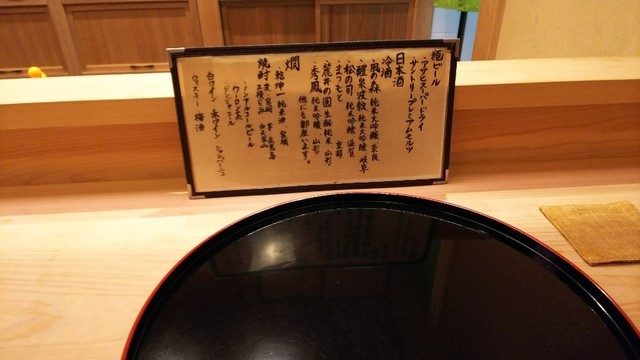 瓶ビール
・アサヒスーパードライ
サントリープレミアムモルツ
日本酒
冷酒
・風の森 純米大吟醸 奈良
・醴泉 純米大吟醸 岐阜
・松の司 純米吟醸 滋賀
・まつもと 京都
・麓井の圓 生酛純米 山形
・秀鳳 純米吟醸 山形
他にも御座います。
燗
・乾坤一 純米 宮城
焼酎
・ノンアルコールビール
・ウーロン茶
・ジンジャエール
白ワイン 赤ワイン シャンパーニュ
ウィスキー 梅酒